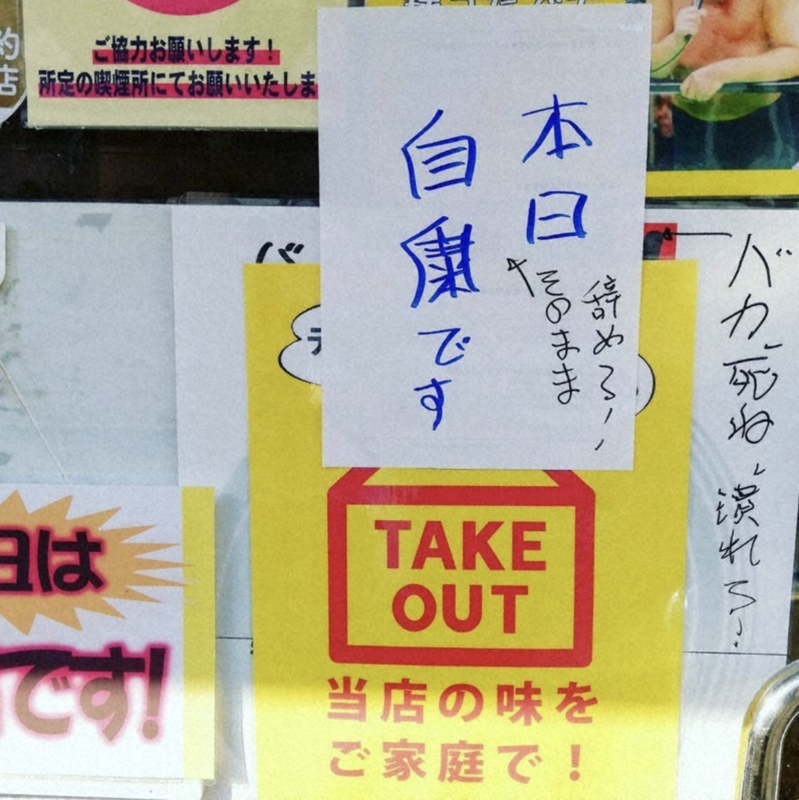 約
店
ご協力お願いします！
所定の喫煙所にてお願いいたしま
本日
自粛です
そのまま
辞めろ！
バカ、死ね、潰れろ！
バ
デ
TAKE
OUT
当店の味を
ご家庭で！
日は
です!